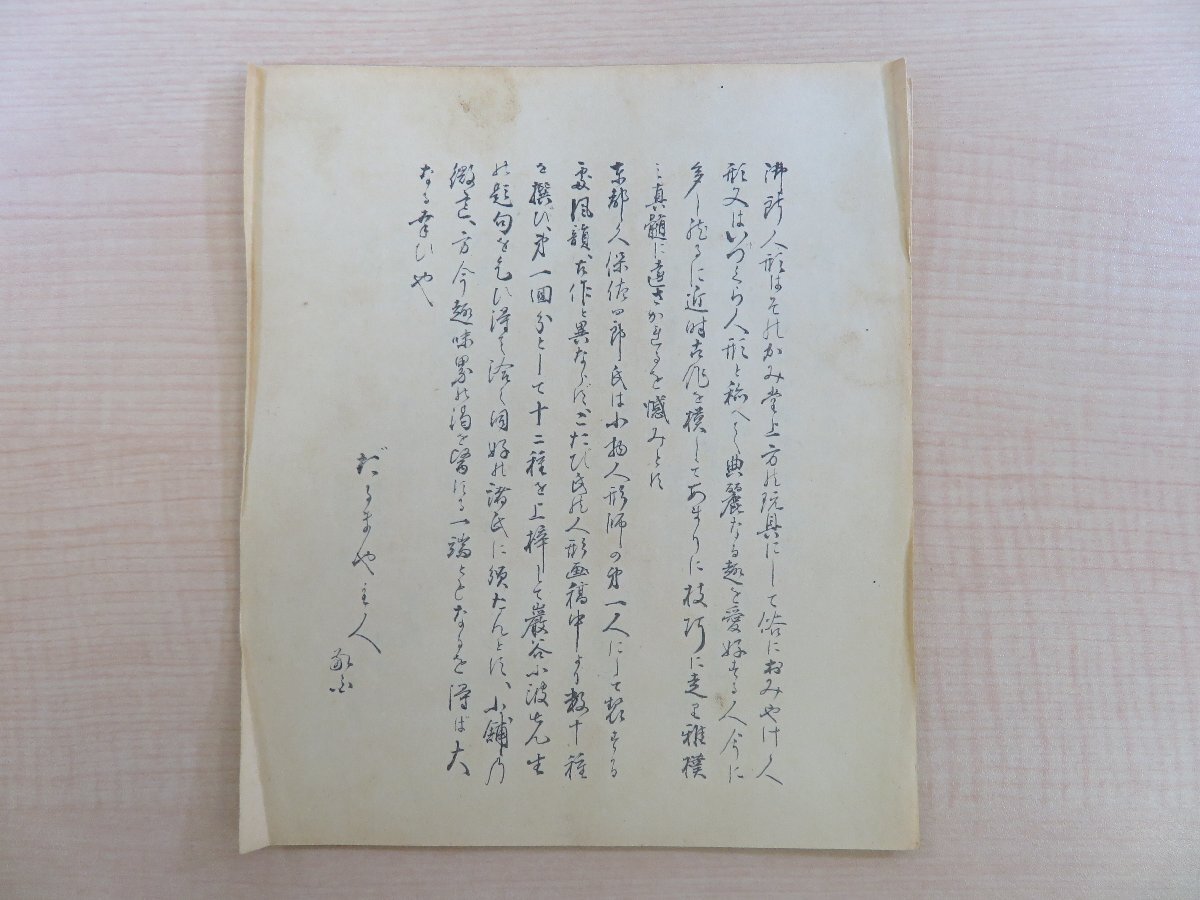 御所人形はそのかみ堂上方の玩具にして俗におみやけ人
形又はいづくら人形と称へら典麗なる趣を愛好する人今に
多し然るに近時古作を模してあまりに技巧に走り雅樸
之真髄に遠さかるを憾みとす
東都久保佐四郎氏は小物人形師の第一人にして製する
處風韻古作と異ならずこたび氏の人形画稿中より数十種
を撰び第一回分として十二種を上梓して巖谷小波先生
の題句を乞ひ得て洽く同好の諸氏に頒たんとす、小舗の
微意、方今趣味界の渇を医する一端ともなるを得ば大
なる幸ひや
だるまや主人
敬白